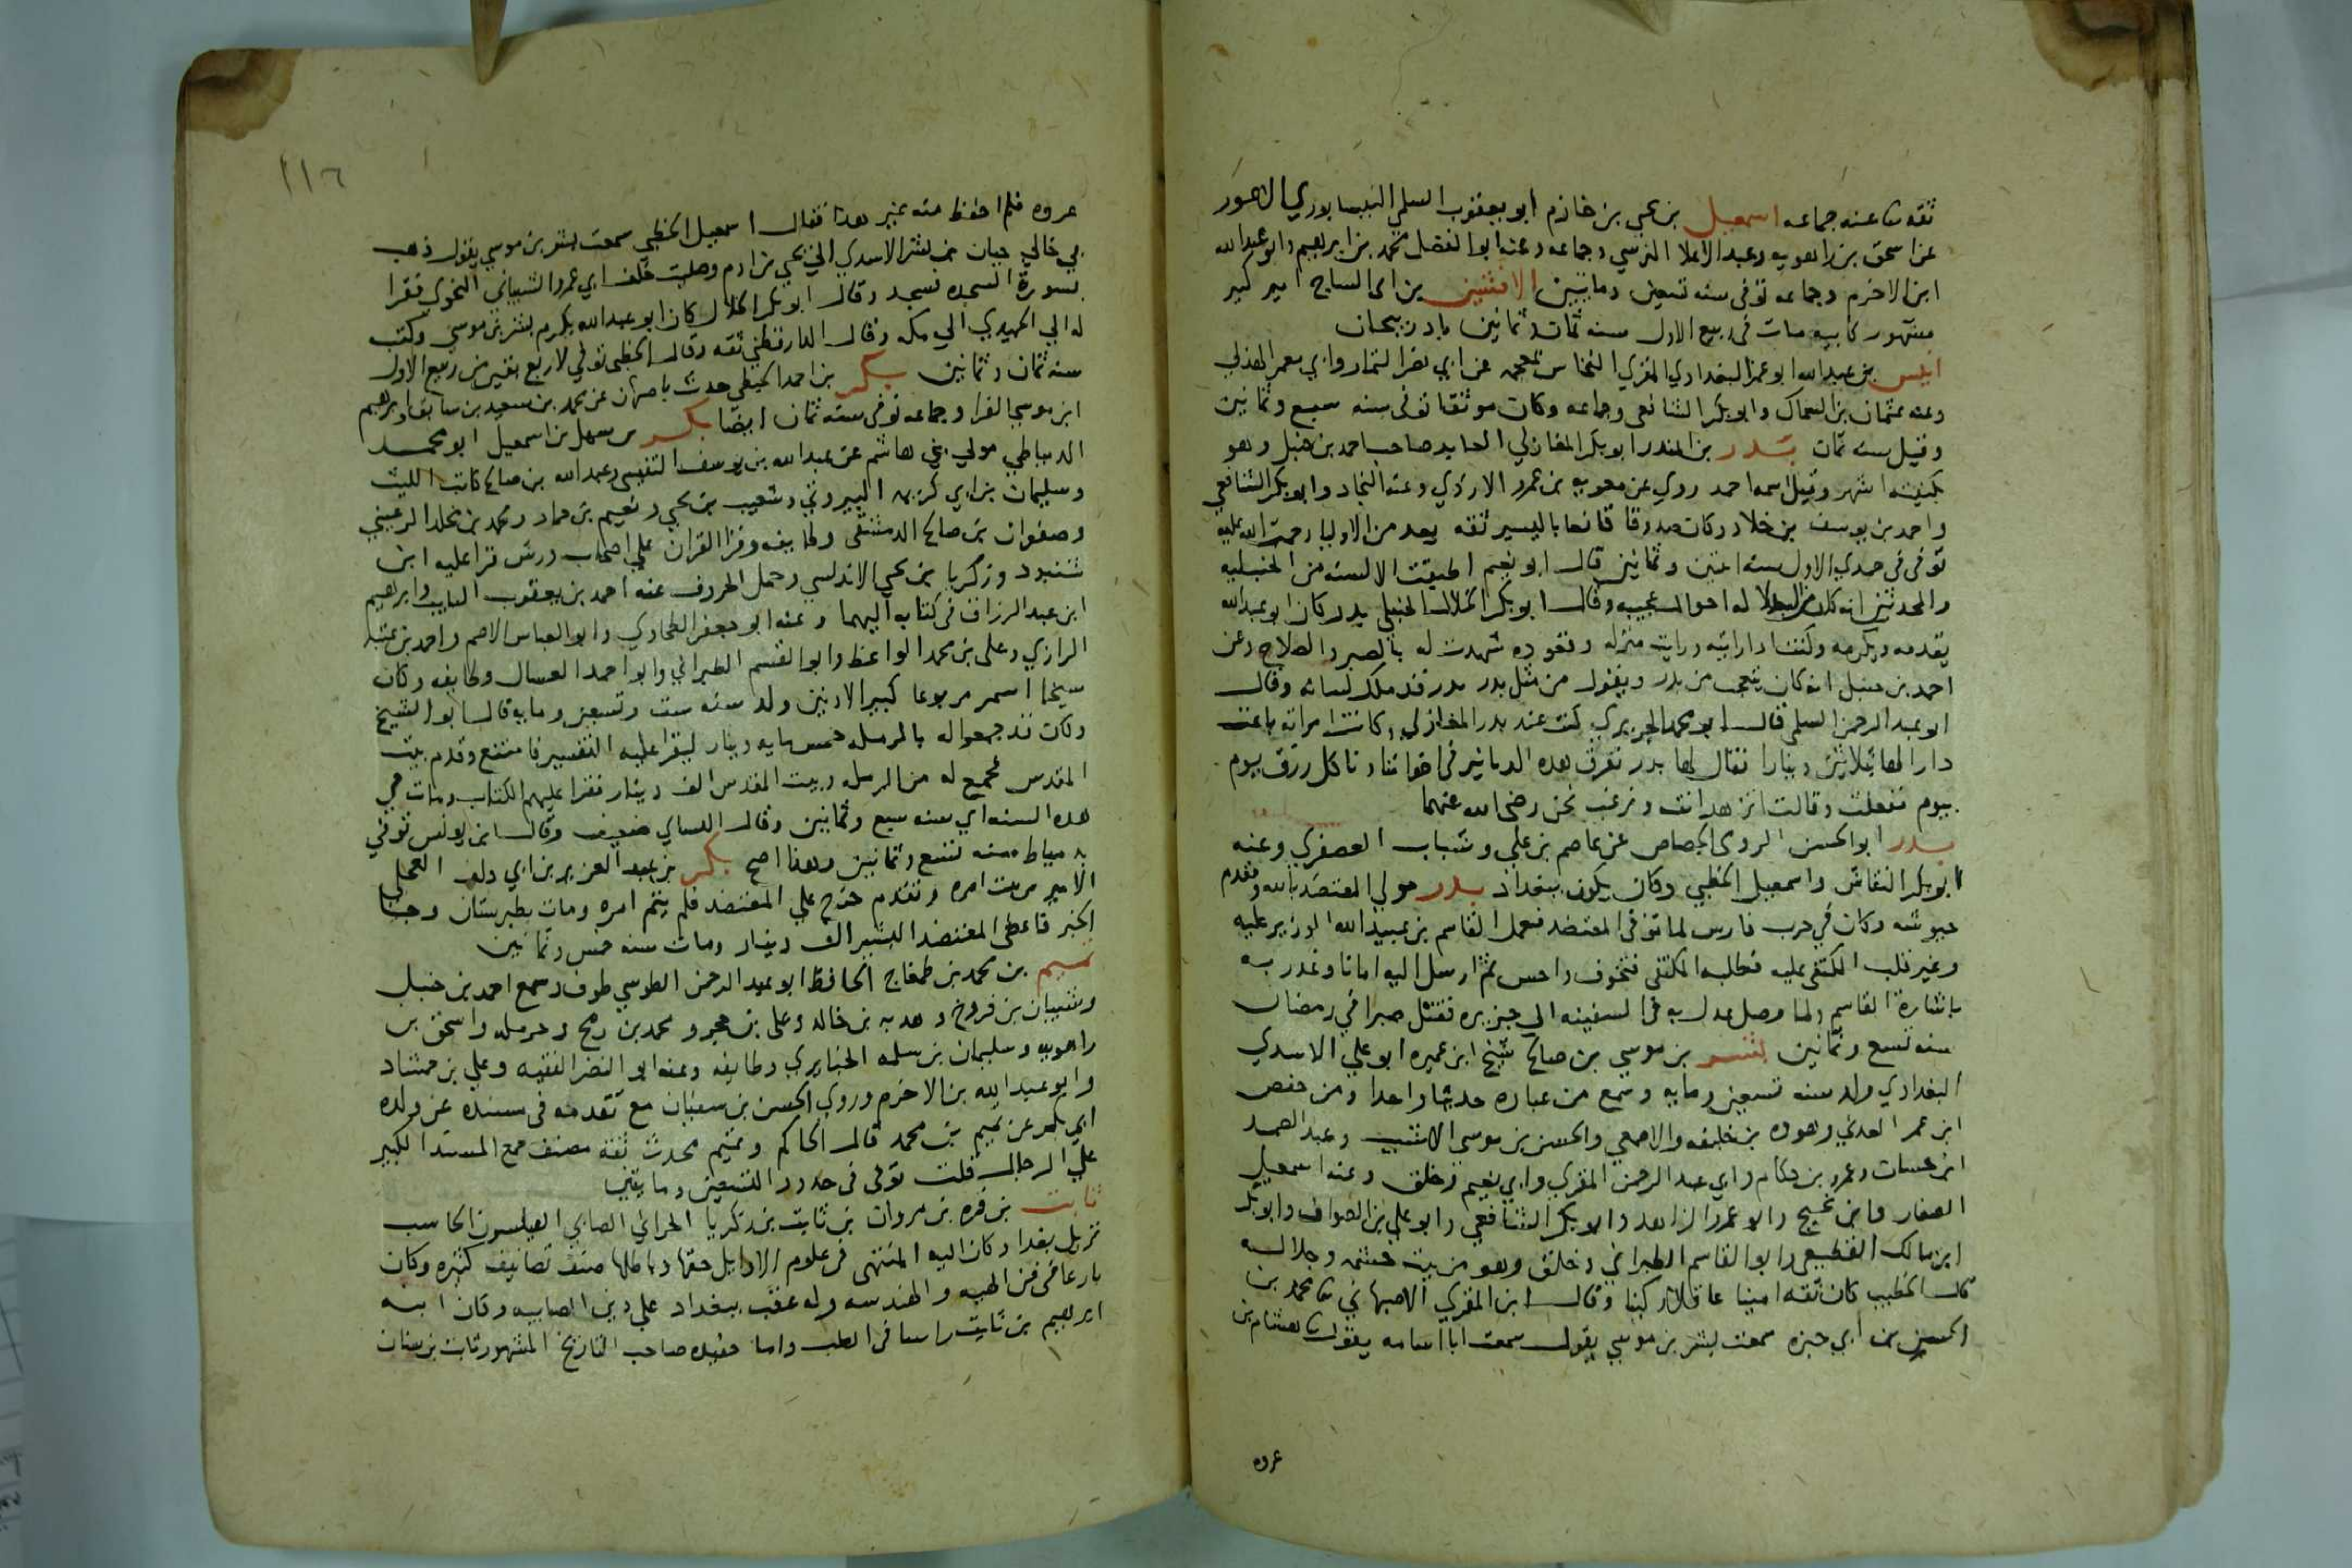 ثقه ثنا عنه جماعه اسمعيل بن يحيى بن خازم ابو يعقوب السلمي النيسابوري الاعور
عن اسحق بن راهويه وعبد الاعلا النرسي وجماعه وعنه ابو الفضل محمد بن ابراهيم وابو عبد الله
ابن الاخرم وجماعه توفى سنه تسعين ومايتين الافشين بن ابى الساج امير كبير
مشهور كابيه مات في ربيع الاول سنه ثمان وثمانين باذربيجان
انيس بن عبد الله ابو عمر البغدادي المقري النخاس بمعجمه عن ابي نصر التمار وابي معمر الهذلي
وعنه عثمان بن السماك وابو بكر الشافعي وجماعه وكان موثقا توفى سنه سبع وثمانين
وقيل سنه ثمان بدر بن المنذر ابو بكر المغازلي العابد صاحب احمد بن حنبل وهو
بكنيته اشهر وقيل اسمه احمد روي عن معويه بن عمرو الازدي وعنه النجاد وابو بكر الشافعي
واحمد بن يوسف بن خلاد وكان صدوقا قانعا باليسير ثقه يعد من الاوليا رحمة الله عليه
توفى في جمدي الاول سنه اثنين وثمانين قال ابو نعيم اطبقت الالسنه من الحنبليه
والمحدثين انه كان من البدلا له احوال عجيبه وقال ابو بكر الخلال الحنبلي بدر كان ابو عبد الله
يقدمه ويكرمه وكنت اذا رايته ورايت منزله وقعوده شهدت له بالصبر والصلاح وعن
احمد بن حنبل انه كان يتعجب من بدر ويقول من مثل بدر بدر قد ملك لسانه وقال
ابو عبد الرحمن السلمي قال ابو محمد الجريري كنت عند بدر المغازلي وكانت امراته باعت
دارا لها بثلاثين دينارا فقال لها بدر نفرق هذه الدنانير في اخواننا وناكل رزق يوم
بيوم ففعلت وقالت تزهد انت ونرغب نحن رضى الله عنهما
بدر ابو الحسن الرومى الجصاص عن عاصم بن علي وشباب العصفري وعنه
ابو بكر النقاش واسمعيل الخطبي وكان يكون ببغداد بدر مولي المعتضد بالله ومقدم
جيوشه وكان في حرب فارس لما توفى المعتضد فعمل القاسم بن عبيد الله الوزير عليه
وغير قلب المكتفى عليه فطلبه المكتفى فتخوف واحس ثم ارسل اليه امانا وغدر به
باشارة القاسم ولما وصل عدل به في السفينه الى جزيره فقتل صبرا في رمضان
سنه تسع وثمانين بشر بن موسي بن صالح شيخ ابن عميره ابو علي الاسدي
البغدادي ولد سنه تسعين ومايه وسمع من عباده حديثا واحدا ومن حفص
ابن عمر العدني وهوذه بن خليفه والاصمعي والحسن بن موسي الاشيب وعبد الصمد
ابن حسان وعمرو بن حكام وابي عبد الرحمن المقري وابي نعيم وخلق وعنه اسمعيل
الصفار وابن نجيح وابو عمر الزاهد وابو بكر الشافعي وابو علي بن الصواف وابو بكر
ابن مالك القطيعي وابو القاسم الطبراني وخلق وهو من بيت حشمه وجلاله
قال الخطيب كان ثقه امينا عاقلا ركينا وقال ابن المقري الاصبهاني ثنا محمد بن
الحسن بن ابي حبزه سمعت بشر بن موسي يقول سمعت ابا اسامه يقول ثنا هشام بن
عروه
١١٦
عروه فلم احفظ منه غير هذا فقال اسمعيل الخطبي سمعت بشر بن موسي يقول ذهب
بي خالي حيان بن بشر الاسدي الي يحيى بن ادم وصليت خلف ابي عمرو الشيباني النحوي فقرا
بسورة السجده فسجد وقال ابو بكر الخلال كان ابو عبد الله يكرم بشر بن موسي وكتب
له الي الحميدي الي مكه وقال الدارقطني ثقه وقال الخطبي توفي لاربع بقين من ربيع الاول
سنه ثمان وثمانين بكر بن احمد الجيفلي حدث باصبهان عن محمد بن سعيد بن سابق وابراهيم
ابن موسي الفرا وجماعه توفى سنه ثمان ايضا بكر بن سهل بن اسمعيل ابو محمد
الدمياطي مولي بني هاشم عن عبد الله بن يوسف التنيسي وعبد الله بن صالح كاتب الليث
وسليمان بن ابي كريمه البيروتي وشعيب بن يحيي ونعيم بن حماد ومحمد بن مخلد الرعيني
وصفوان بن صالح الدمشقي وطايفه وقرا القران علي اصحاب ورش قرا عليه ابن
شنبود وزكريا بن يحي الاندلسي وحمل الحروف عنه احمد بن يعقوب التايب وابراهيم
ابن عبد الرزاق في كتابه اليهما وعنه ابو جعفر الطحاوي وابو العباس الاصم واحمد بن عتبه
الرازي وعلي بن محمد الواعظ وابو القسم الطبراني وابو احمد العسال وطايفه وكان
شيخا اسمر مربوعا كبير الاذنين ولد سنه ست وتسعين ومايه قال ابو الشيخ
وكان قد جمعوا له بالرمله خمس مايه دينار ليقرا عليه التفسير فامتنع وقدم بيت
المقدس فجمع له من الرمله وبيت المقدس الف دينار فقرا عليهم الكتاب ومات في
هذه السنه اي سنه سبع وثمانين وقال النساي ضعيف وقال ابن يونس توفي
بدمياط سنه تسع وثمانين وهذا اصح بكر بن عبد العزيز بن ابي دلف العجلي
الامير من بيت امره وتقدم خرج علي المعتضد فلم يتم امره ومات بطبرستان وجا
الخبر فاعطى المعتضد البشير الف دينار ومات سنه خمس وثمانين
تميم بن محمد بن طمغاج الحافظ ابو عبد الرحمن الطوسي طوف وسمع احمد بن حنبل
وشيبان بن فروخ وهدبه بن خالد وعلي بن حجر ومحمد بن رمح وحرمله واسحق بن
راهويه وسليمان بن سلمه الخبايري وطايفه وعنه ابو النضر الفقيه وعلي بن حمشاد
وابو عبد الله بن الاخرم وروي الحسن بن سفيان مع تقدمه في مسنده عن ولده
ابي بكر عن تميم بن محمد قال الحاكم وتميم محدث ثقه مصنف جمع المسند الكبير
علي الرجال قلت توفى في حدود التسعين ومايتين
ثابت بن قره بن مروان بن ثابت بن زكريا الحراني الصابي الفيلسوف الحاسب
نزيل بغداد وكان اليه المنتهى في علوم الاوايل حقها وباطلها صنف تصانيف كثيره وكان
بارعا في فن الهيه والهندسه وله عقب ببغداد علي دين الصابيه وكان ابنه
ابرهيم بن ثابت راسا في الطب واما حفيده صاحب التاريخ المشهور ثابت بن سنان